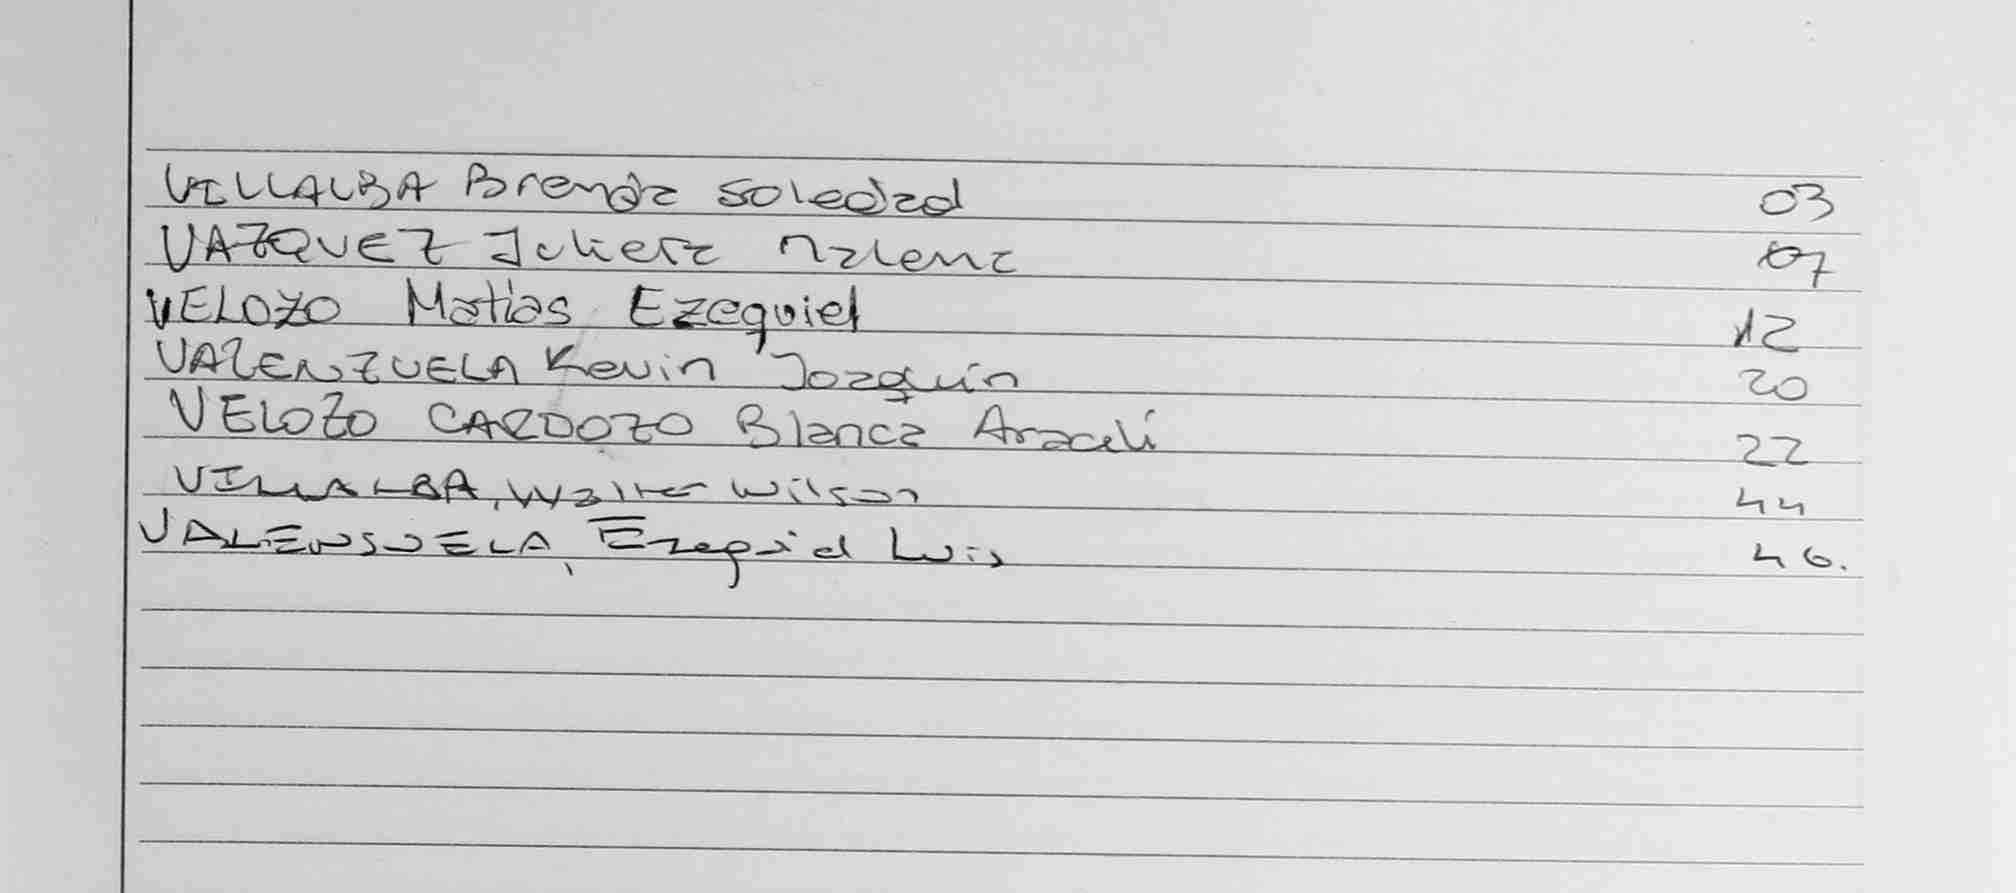 VILLALBA Brenda Soledad 03
VAZQUEZ Julieta Malena 07
VELOZO Matias Ezequiel 12
VALENZUELA Kevin Joaquin 20
VELOZO CARDOZO Blanca Araceli 22
VILLALBA, Walter Wilson 44
VALENSUELA, Ezequiel Luis 46.